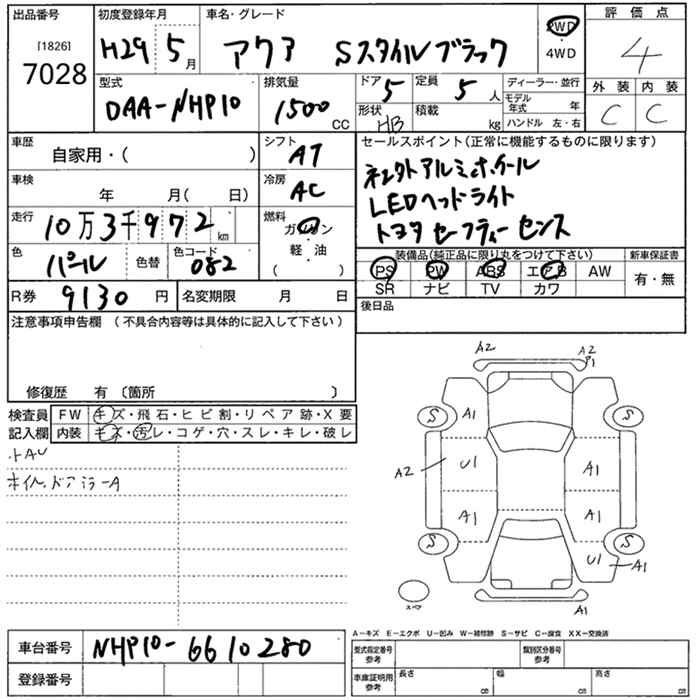 出品番号
[1826]
7028
初度登録年月
H29 5月
車名・グレード
アクア Sスタイルブラック
2WD
4WD
評価点
4
型式
DAA-NHP10
排気量
1500 CC
ドア 5
定員 5 人
形状 HB
積載 kg
ディーラー・並行
モデル年式 年
ハンドル 左・右
外装 内装
C C
車歴
自家用・( )
シフト
AT
車検
年 月( 日)
冷房
AC
走行
10万3千972 km
燃料
ガソリン
軽・油
( )
色
パール
色替
色コード
082
R券 9130 円
名変期限 月 日
セールスポイント(正常に機能するものに限ります)
LEDヘッドライト
トヨタ セーフティーセンス
装備品(純正品に限り丸をつけて下さい)
PS PW ABS エアB AW
SR ナビ TV カワ
新車保証書
有・無
後日品
注意事項申告欄 (不具合内容等は具体的に記入して下さい)
修復歴 有 〔箇所 〕
検査員
記入欄
FW キズ・飛石・ヒビ割・リペア跡・X要
内装 キズ・汚レ・コゲ・穴・スレ・キレ・破レ
ホイル、ドアミラーA
A2
A2
A1
S
A1
S
A2
U1
A1
A1
A1
S
S
U1
A1
スペア
A1
A−キズ E−エクボ U−凹み W−補修跡 S−サビ C−腐食 XX−交換済
車台番号 NHP10-6610280
登録番号
型式指定番号
参考
類別区分番号
参考
車庫証明用
参考
長さ cm
幅 cm
高さ cm